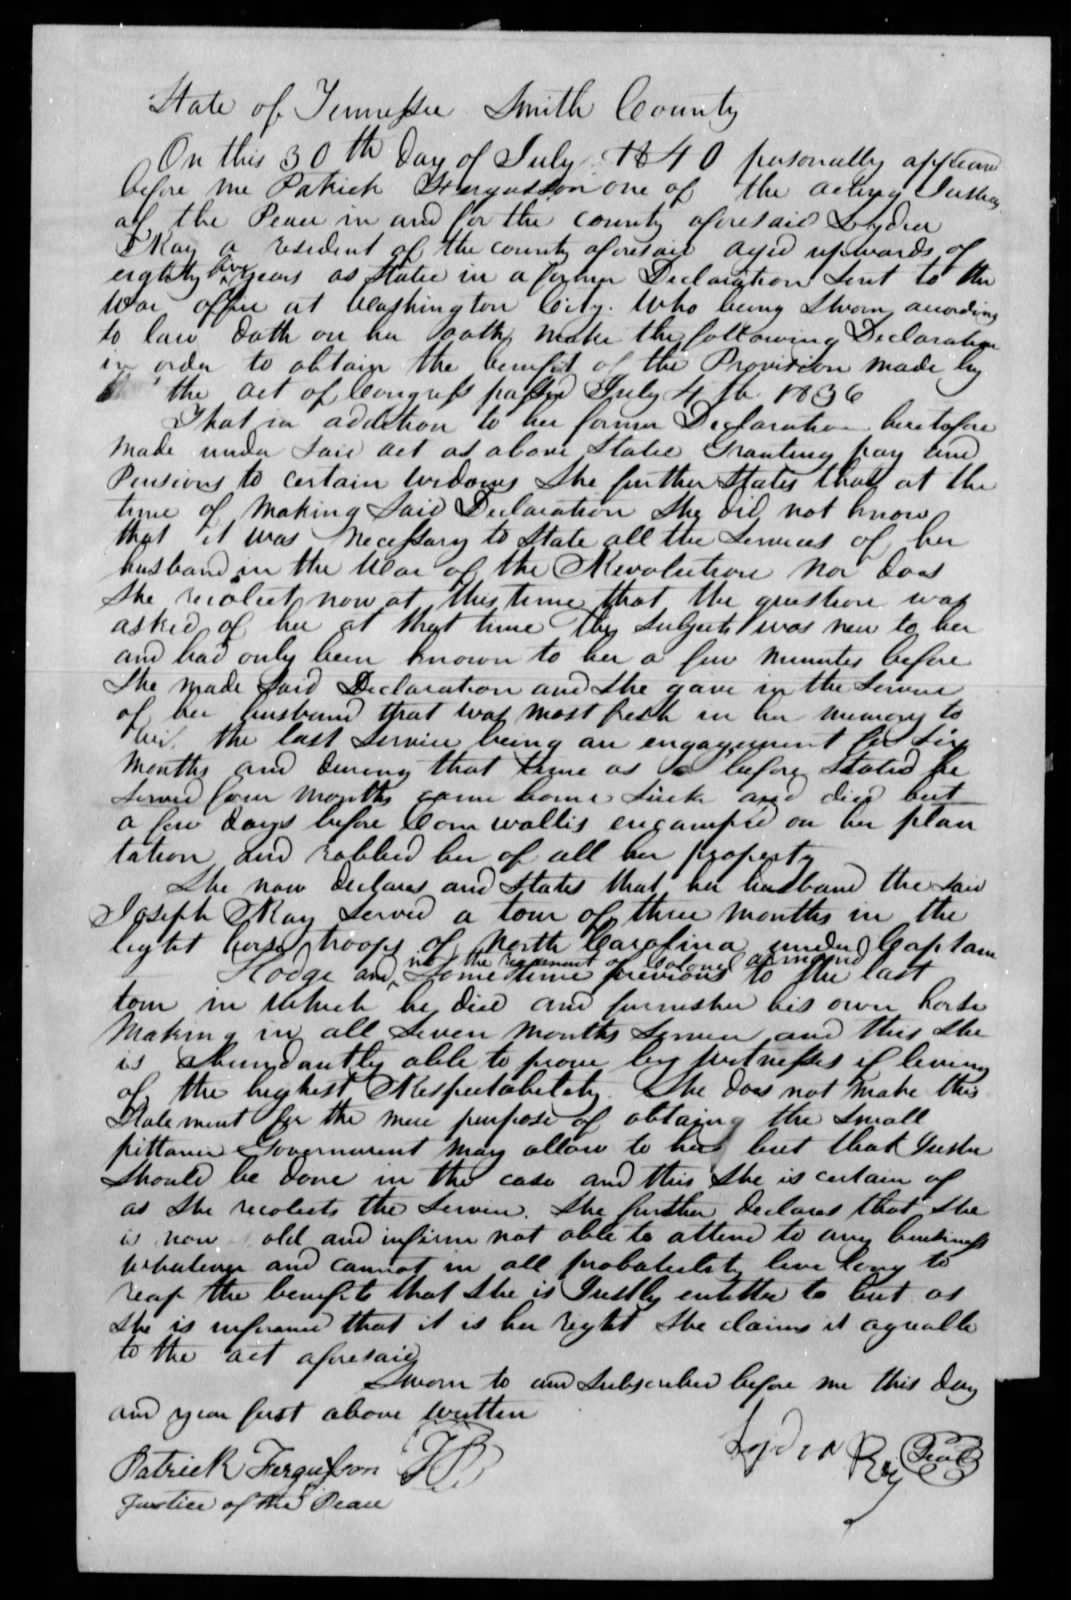 State of Tennessee Smith County
On this 30th Day of July 1840 personally appeard
before me Patrick Fergusson one of the acting Justices
of the Peace in and for the county aforesaid Lydia
Ray a resident of the county aforesaid aged upwards of
eightty five years as Stated in a former Declaration Sent to the
War office at Washington City. Who being Sworn according
to law doth on her oath make the following Declaration
in order to obtain the benefit of the Provision made by
the act of Congress passed July 4th 1836
That in addition to her former Declaration heretofore
made under Said act as above Stated Granting pay and
Pensions to certain widows She further States that at the
time of making Said Declaration She did not know
that it was Necessary to State all the Services of her
husband in the War of the Revolution nor does
She recolect now at this time that the question was
asked of her at that time the Subject was new to her
and had only been known to her a few minutes before
She made Said Declaration and She gave in the Service
of her husband that was most fresh in her memory to
wit. the last Service being an engagement for Six
months and During that time as before Stated he
Served four months came home Sick and died but
a few Days before Cornwallis encamped on her plan
tation and robbed her of all her property
She now Declares and States that her husband the Said
Joseph Ray Served a tour of three months in the
light horse troops of North Carolina under Captain
in the regiment of Colonel armand
Hodge and Some time previous to the last
tour in which he died and furnished his own horse
Making in all Seven months Service and this She
is abundantly able to prove by witnesses if living
of the highest Respectabelity. She does not make this
Statement for the mere purpose of obtaing the Small
pittance Government may allow to her but that Justice
Should be done in the case and this She is certain of
as She recolects the Service. She further Declares that She
is now old and infirm not able to attend to any business
whatever and cannot in all probabelity live long to
reap the benefits that She is Justly entitled to but as
She is informed that it is her right She claims it agreable
to the act aforesaid
Sworn to and Subscribed before me this day
and year first above written
Lydia Ray Seal
Patrick Fergusson
Justice of the Peace